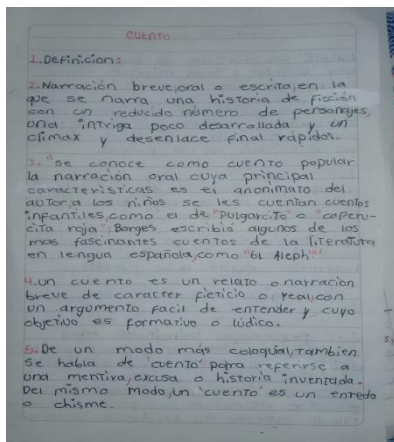 CUENTO
1. Definicion:
2. Narración breve, oral o escrita, en la
que se narra una historia de ficción
con un reducido número de personajes,
una intriga poco desarrollada y un
climax y desenlace final rápidos.
3. "se conoce como cuento popular
la narración oral cuya principal
caracteristicas es el anonimato del
autor, a los niños se les cuentan cuentos
infantiles, como el de "pulgarcito" o "caperu-
cita roja"; Borges escribió algunos de los
mas fascinantes cuentos de la literatura
en lengua española, como "El Aleph""
4. un cuento es un relato o narración
breve de caracter ficticio o real, con
un argumento facil de entender y cuyo
objetivo es formativo o lúdico.
5. De un modo más coloquial, tambien
se habla de 'cuento' para referirse a
una mentira, excusa o historia inventada.
Del mismo modo, un 'cuento' es un enredo
o chisme.